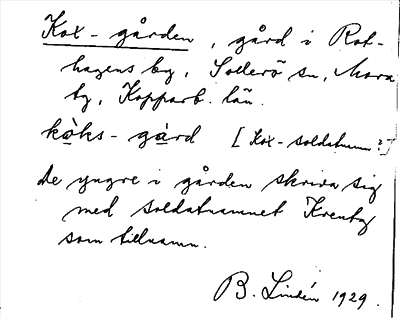 Kox-gården, gård i Rot-
hagens by, Sollerö sn, Mora
ty, Kopparb. län.
kòks-gàrd [Kox-soldatnamn?]
de yngre i gården skriva sig
med soldatnamnet Krentz
som tillnamn.
B. Lindén 1929.